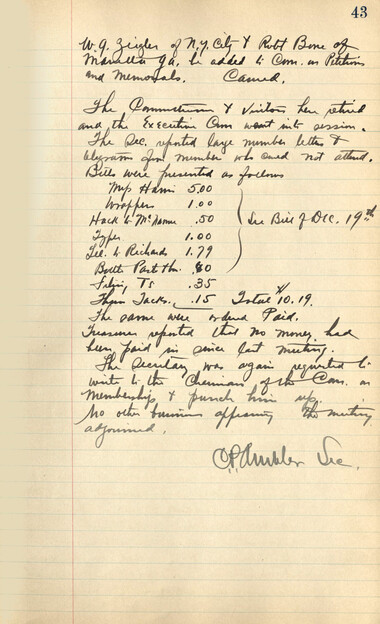 43
W. G. Zeigler of N.Y. City & Robt Bone of
Marietta Ga. be added to Com. on Petitions
and Memorials. Carried.
The Commissioners & Visitors here retired
and the Executive Com went into session.
The Sec. reported large number letters &
telegrams from members who could not attend.
Bills were presented as follows
Miss Harris 5.00
Wrappers 1.00
Hack to McNamee .50
Type 1.00
Tel. to Richards 1.79
See Bill of Dec. 19th
.35
Thum Tacks. .15 Total $10.19.
The same were ordered Paid.
Treasurer reported that no money had
been paid in since last meeting.
The Secretary was again requested to
write to the Chairman of the Com. on
Membership & punch him up.
No other business appearing the meeting
adjourned.
C.P. Ambler Sec.